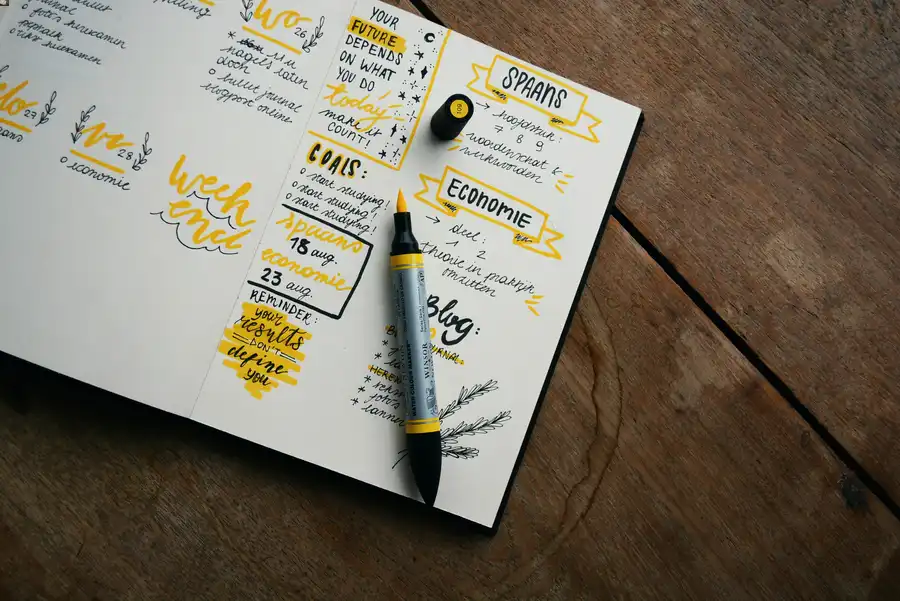 herexamen
herexamen
wo
26
nagels laten
doen
o bullet journal
blogpost online
27
28
o economie
Week
end
YOUR
FUTURE
DEPENDS
ON WHAT
YOU DO
today
make it
COUNT!
GOALS:
o start studying!
o start studying!
o start studying!
spaans
18 aug.
economie
23 aug.
REMINDER:
your
results
DON'T
define
you
SPAANS
→ hoofdstuk:
7 8 9
woordenschat &
werkwoorden
ECONOMIE
→ deel:
1 2
theorie in
omzetten
Blog:
WINSOR